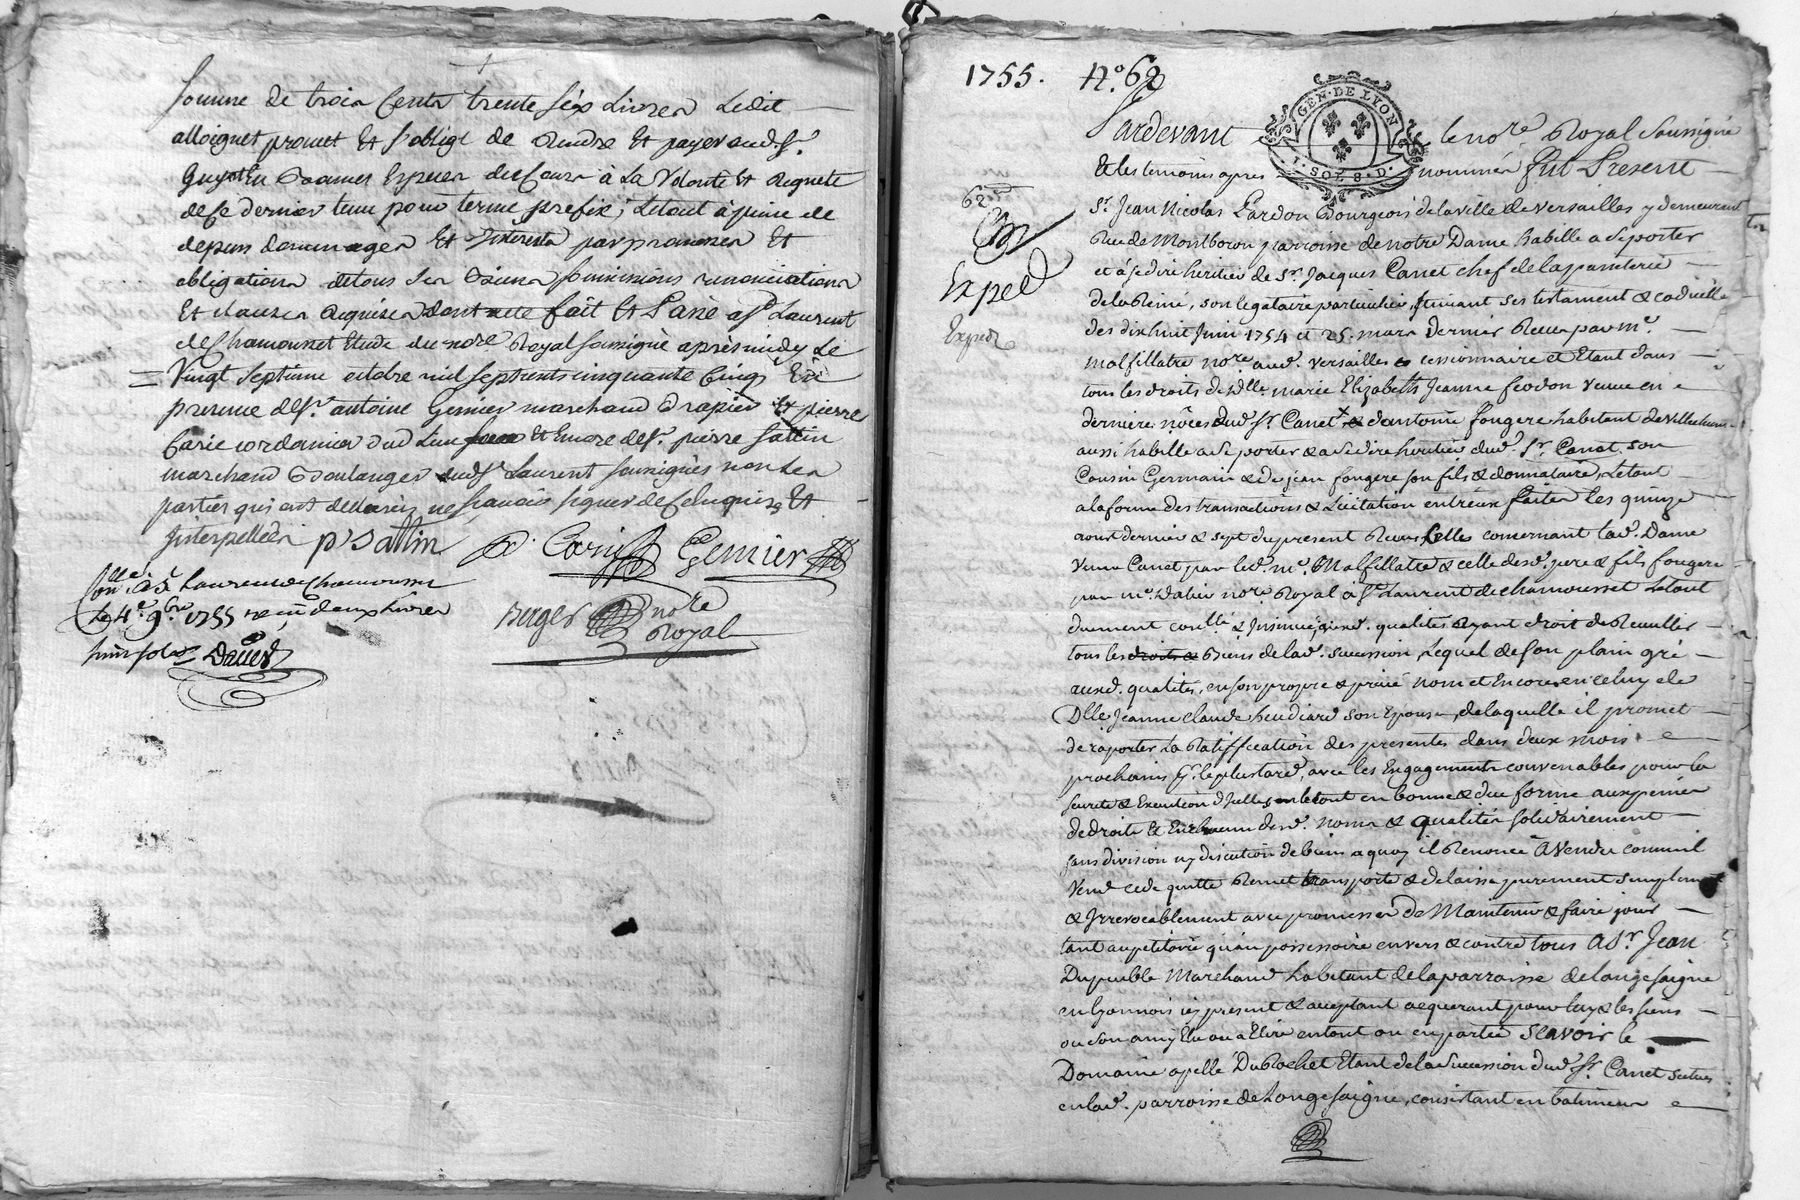 somme de trois cents trente six Livres Ledit
alloignet promet Et s'oblige de Rendre Et payer aud. Sr.
Guyot En Bonnes Especes descours à La Volonté Et Requete
de ce dernier tenu pour terme prefix, Letout à peine de
depens dommages Et Interests par promesses Et
obligations detous ses Biens soumissions renonciations
Et clauses Requises dont acte fait Et Passé a St. Laurent
de Chamousset Etude du nore. Royal soussigné après midy Le
Vingt Septieme octobre mil septcents cinquante Cinq En
presence de Sr. antoine Gemier marchand Drapier Et pierre
Carie cordonnier dud. Lieu Et Encore de Sr. pierre Sattin
marchand Boulanger aud. St. Laurent soussignés non Les
parties qui ont declarés ne scavoir signer de ce Enquises Et
Interpellées p. Sattin P. Carie Gemier
Conllé à St. Laurent de Chamousset
Le 4e. 9bre. 1755 reçu deux Livres
huit sols
Berger nore
Royal
1755. N.° 68
GEN. DE LYON
I. SOL 8. D.
Pardevant le nore. Royal Soussigné
Et les temoins apres nommés fut Present
Sr. Jean Nicolas Pardon Bourgeois de la ville de Versailles y demeurant
Rue de Montboron parroisse de notre Dame habille a se porter
et à se dire heritier de Sr. Jacques Canet chef de la paneterie
de la Reine, son legataire particulier, suivant ses testament & codicille
des dix huit Juin 1754 et 25. mars dernier Recus par me.
malfillatre nore. aud. Versailles cessionnaire et Etant dans
tous les droits de Dlle. marie Elizabeth Jeanne feodon Veuve en
dernieres nôces dud. Sr. Canet & d'antoine fougere habitant de
aussi habille a se porter & a se dire heritier dud. Sr. Canet son
Cousin Germain & de jean fougere son fils & donnataire, Letout
a la forme des transactions & Licitation entreux faites les quinze
aoust dernier & sept du present Recus, celles concernant lad. Dame
Veuve Canet par led. me. Malfillatre & celle desd. pere & fils fougere
par me. Dalier nore. Royal à St. Laurent de chamousset Letout
duement conllé. & Insinué, auxd. qualités Ayant droit de Recueillir
tous les droits & Biens de lad. succession, Lequel de son plain gré
auxd. qualités, en son propre & privé nom et Encore en celuy de
Dlle. Jeanne claude heudiard son Epouse, de laquelle il promet
de raporter La Ratiffication des presentes dans deux mois
prochains pr. le plus tard, avec les Engagements convenables pour la
seureté & Execution d'Icelles, Letout en bonne & due forme aux peines
de droits & En chacun desd. noms & qualités solidairement
sans division ny discution de biens a quoy il Renonce A Vendu comme il
Vend cede quitte Remet transporte & delaisse purement simplement
& Irrevocablement avec promesses de Maintenir & faire jouir
tant au petitoire qu'au possessoire envers & contre tous A Sr. Jean
Dupeuble Marchand habitant de la parroisse de longesaigne
en lyonnois icy present & acceptant acquerant pour luy & les siens
ou son amy Elu ou a Elire en tout ou en partie Scavoir le
Domaine apellé Du Rochet Etant de la Succession dud. Sr. Canet situé
en lad. parroisse de Longesaigne, consistant en batimens
62
Exped
Exped